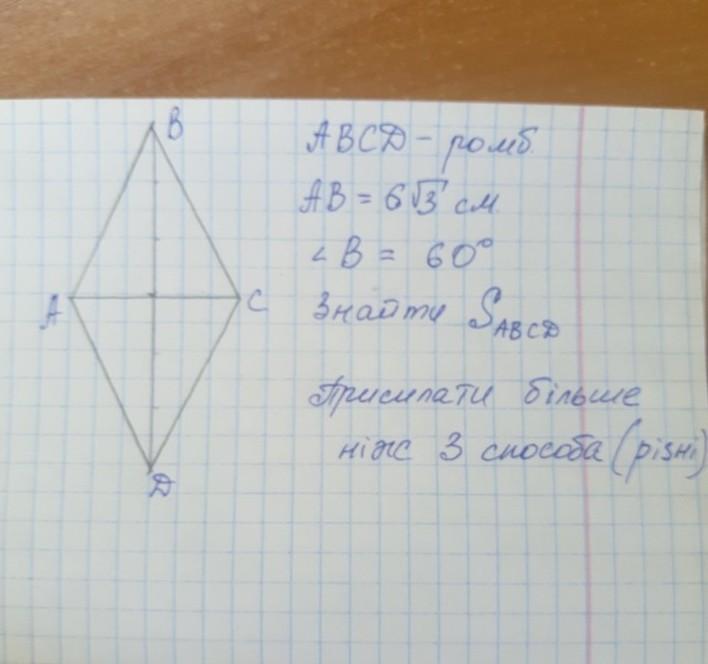 B
A
C
D
ABCD - ромб.
AB = 6√3 см
∠B = 60°
Знайти S_ABCD
Присилати більше
ніж 3 способа (різні)